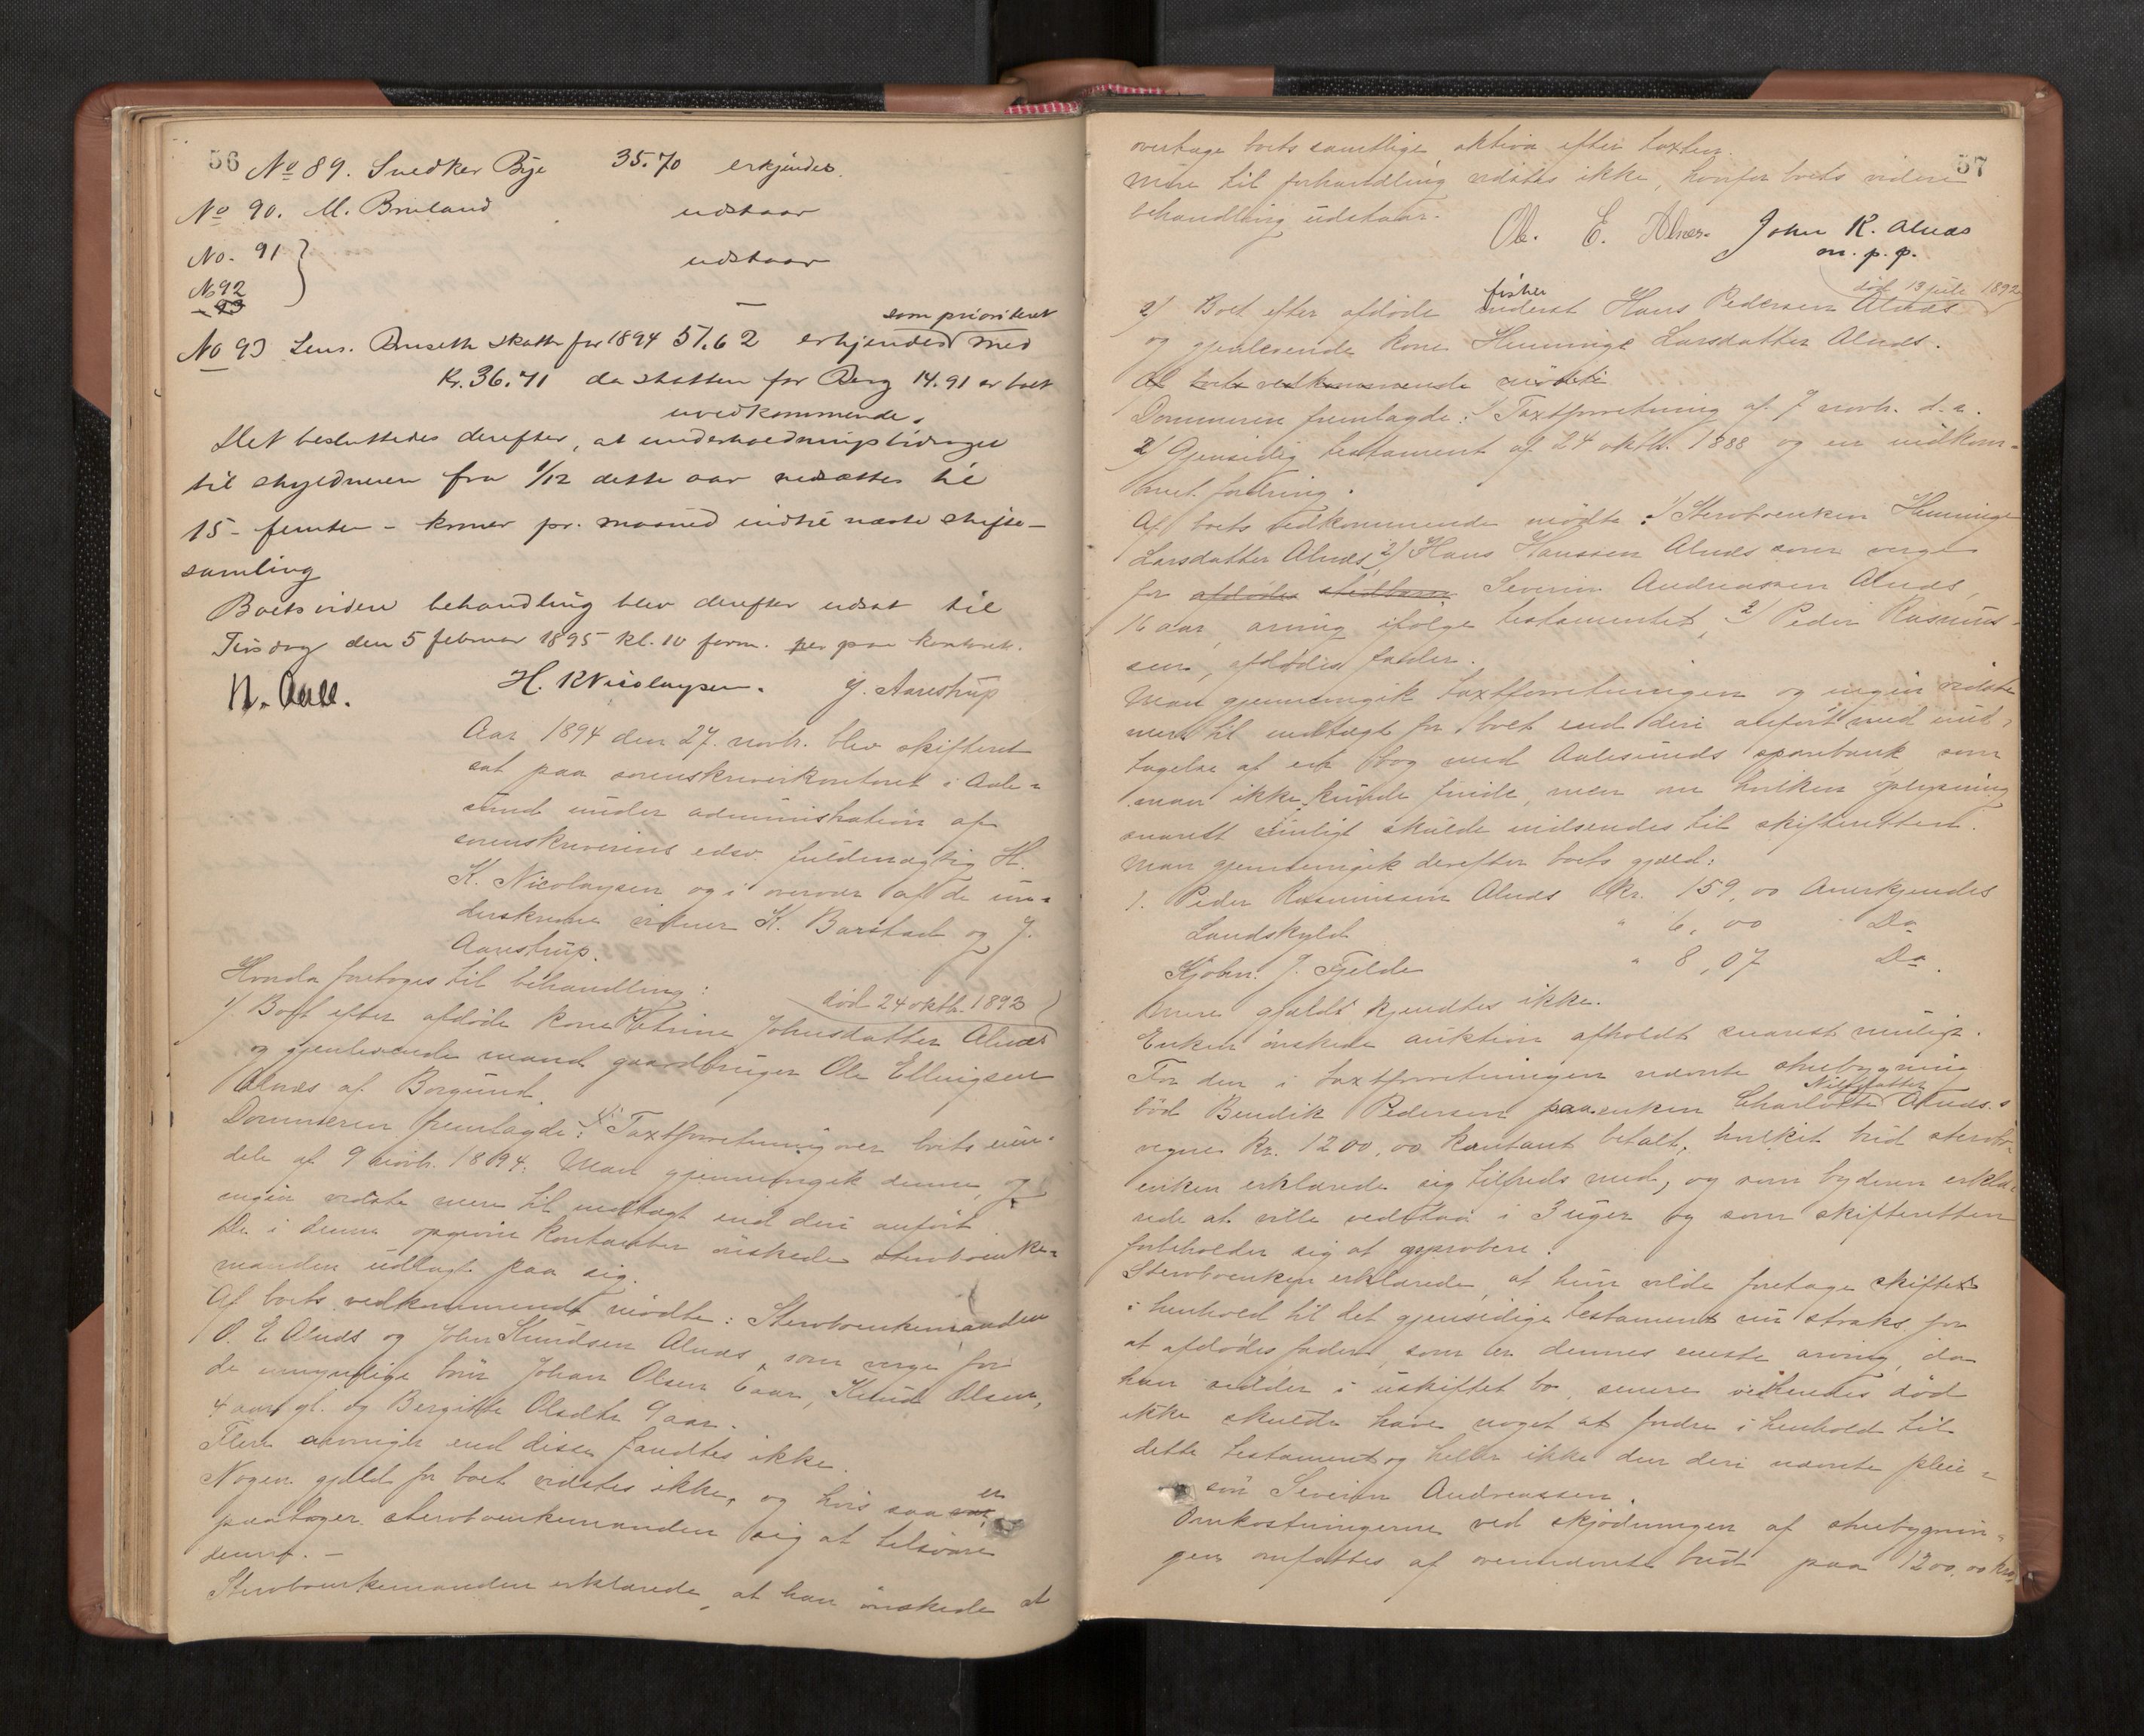 56
No 89. Snedker Bye 35.70 erkjendes.
No 90. M. Bruland udstaar
No. 91
udstaar
No 92
93
som prioriteret
No 93 Lens. Ruseth skatte for 1894 51.62 erkjendes med
Kr. 36.71 da skatten for Berg 14.91 er boet
uvedkommende.
Det besluttedes derefter, at underholdningsbidraget
til skyldneren fra 1/12 dette aar nedsættes til
15 - femten - kroner pr. maaned indtil næste skifte-
samling
Boets videre behandling blev derefter udsat til
Tirsdag den 5 februar 1895 kl. 10 form. her paa kontoret.
N. Aall. H. K Nicolaysen. J. Aarestrup
Aar 1894 den 27. novb. blev skifteret
sat paa sorenskriverkontoret i Aale-
sund under administration af
sorenskriverens edsv. fuldmægtig H.
K. Nicolaysen og i overvær af de un-
derskrevne vidner K. Barstad og J.
Aarestrup.
Hvorda foretoges til behandling:
død 24 oktb. 1893
1/. Boet efter afdøde kone Petrine Johnsdatter Alnæs
og gjenlevende mand gaardbruger Ole Ellingsen
Alnæs af Borgund.
Dommeren fremlagde: 1/ Taxtforretning over boets eien-
dele af 9 novb. 1894. Man gjennemgik denne, og
ingen vidste mere til indtægt end deri anført
De i denne opgivne kontanter ønskede sterboenke-
manden udlagt paa sig.
Af boets vedkommende mødte: Sterboenkemanden
O. E Alnæs og John Knudsen Alnæs, som verge for
de umyndige børn Johan Olsen 6 aar, Knud Olsen,
4 aar gl. og Bergitte Olsdtr 9 aar.
Flere arvinger end disse fandtes ikke.
Nogen gjæld for boet vidstes ikke, og hvis saa var er
paatager sterboenkemanden sig at tilsvare
denne. -
Sterboenkemanden erklærede, at han ønskede at
57
overtage boets samtlige aktiva efter taxten.
Mere til forhandling vidstes ikke, hvorfor boets videre
behandling udstaar.
Ole. E. Alnes. John K. Alnæs
m. p. p.
død 13 juli 1892
fisker
2/ Boet efter afdøde inderst Hans Pedersen Alnæs
og gjenlevende kone Henninge Larsdatter Alnæs.
Af boets vedkommende mødte
Dommeren fremlagde: 1/ Taxtforretning af 7 novb. d. a.
2/ Gjensidig testament af 24 oktb. 1888 og en indkom-
met fordring.
Af boets vedkommende mødte: 1/ Sterboenken Henninge
Larsdatter Alnæs, 2/ Hans Hanssen Alnæs som verge
for afdødes stedbarn Severin Andreassen Alnæs,
16 aar, arving ifølge testamentet, 3/ Peder Rasmus-
sen, afdødes fader.
Man gjennemgik taxtforretningen og ingen vidste
mere til indtægt for boet end deri anført med und-
tagelse af en bog med Aalesunds sparebank som
man ikke kunde finde, men om hvilken oplysning
snarest muligt skulde indsendes til skifteretten.
Man gjennemgik derefter boets gjæld:
1. Peder Rasmussen Alnæs kr. 159,00 Anerkjendes
Landskyld " 6,00 Do
Kjøbm. J. Fjelde " 8,07 Do.
Mere gjæld kjendtes ikke.
Enken ønskede auktion afholdt snarest muligt.
For den i taxtforretningen nævnte stuebygning
Nilsdatter
bød Bendik Pedersen paa enken Charlotte Alnæs.s
vegne kr. 1200,00 kontant betalt, hvilket bud sterbo-
enken erklærede sig tilfreds med, og som byderen erklæ-
rede at ville vedstaa i 3 uger og som skifteretten
forbeholder sig at approbere.
Sterboenken erklærede, at hun vilde foretage skiftet
i henhold til det gjensidige testament nu straks for
at afdødes fader, som er dennes eneste arving, da
hun sidder i uskiftet bo, senere ved hendes død
ikke skulde have noget at fordre i henhold til
dette testament og heller ikke den deri nævnte pleie-
søn Severin Andreassen.
Omkostningerne ved skjødningen af stuebygnin-
gen omfattes af ovennævnte bud paa 1200,00 kr.